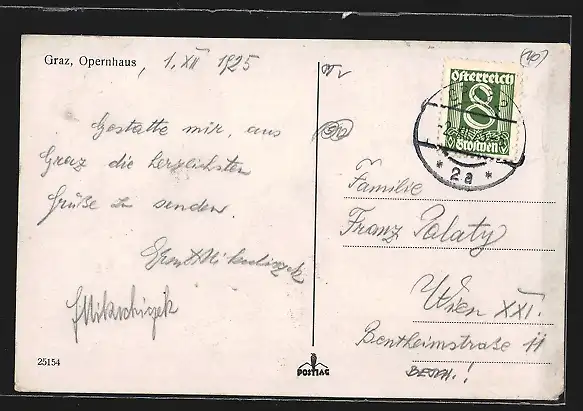 Graz, Opernhaus, 1. XII 1925
Gestatte mir, aus
Graz die herzlichsten
Grüße zu senden.
Österreich
8
Groschen
* 2a *
Familie
Franz Palaty
Wien XXI.
Bentheimstraße 11
25154
POSTIAG